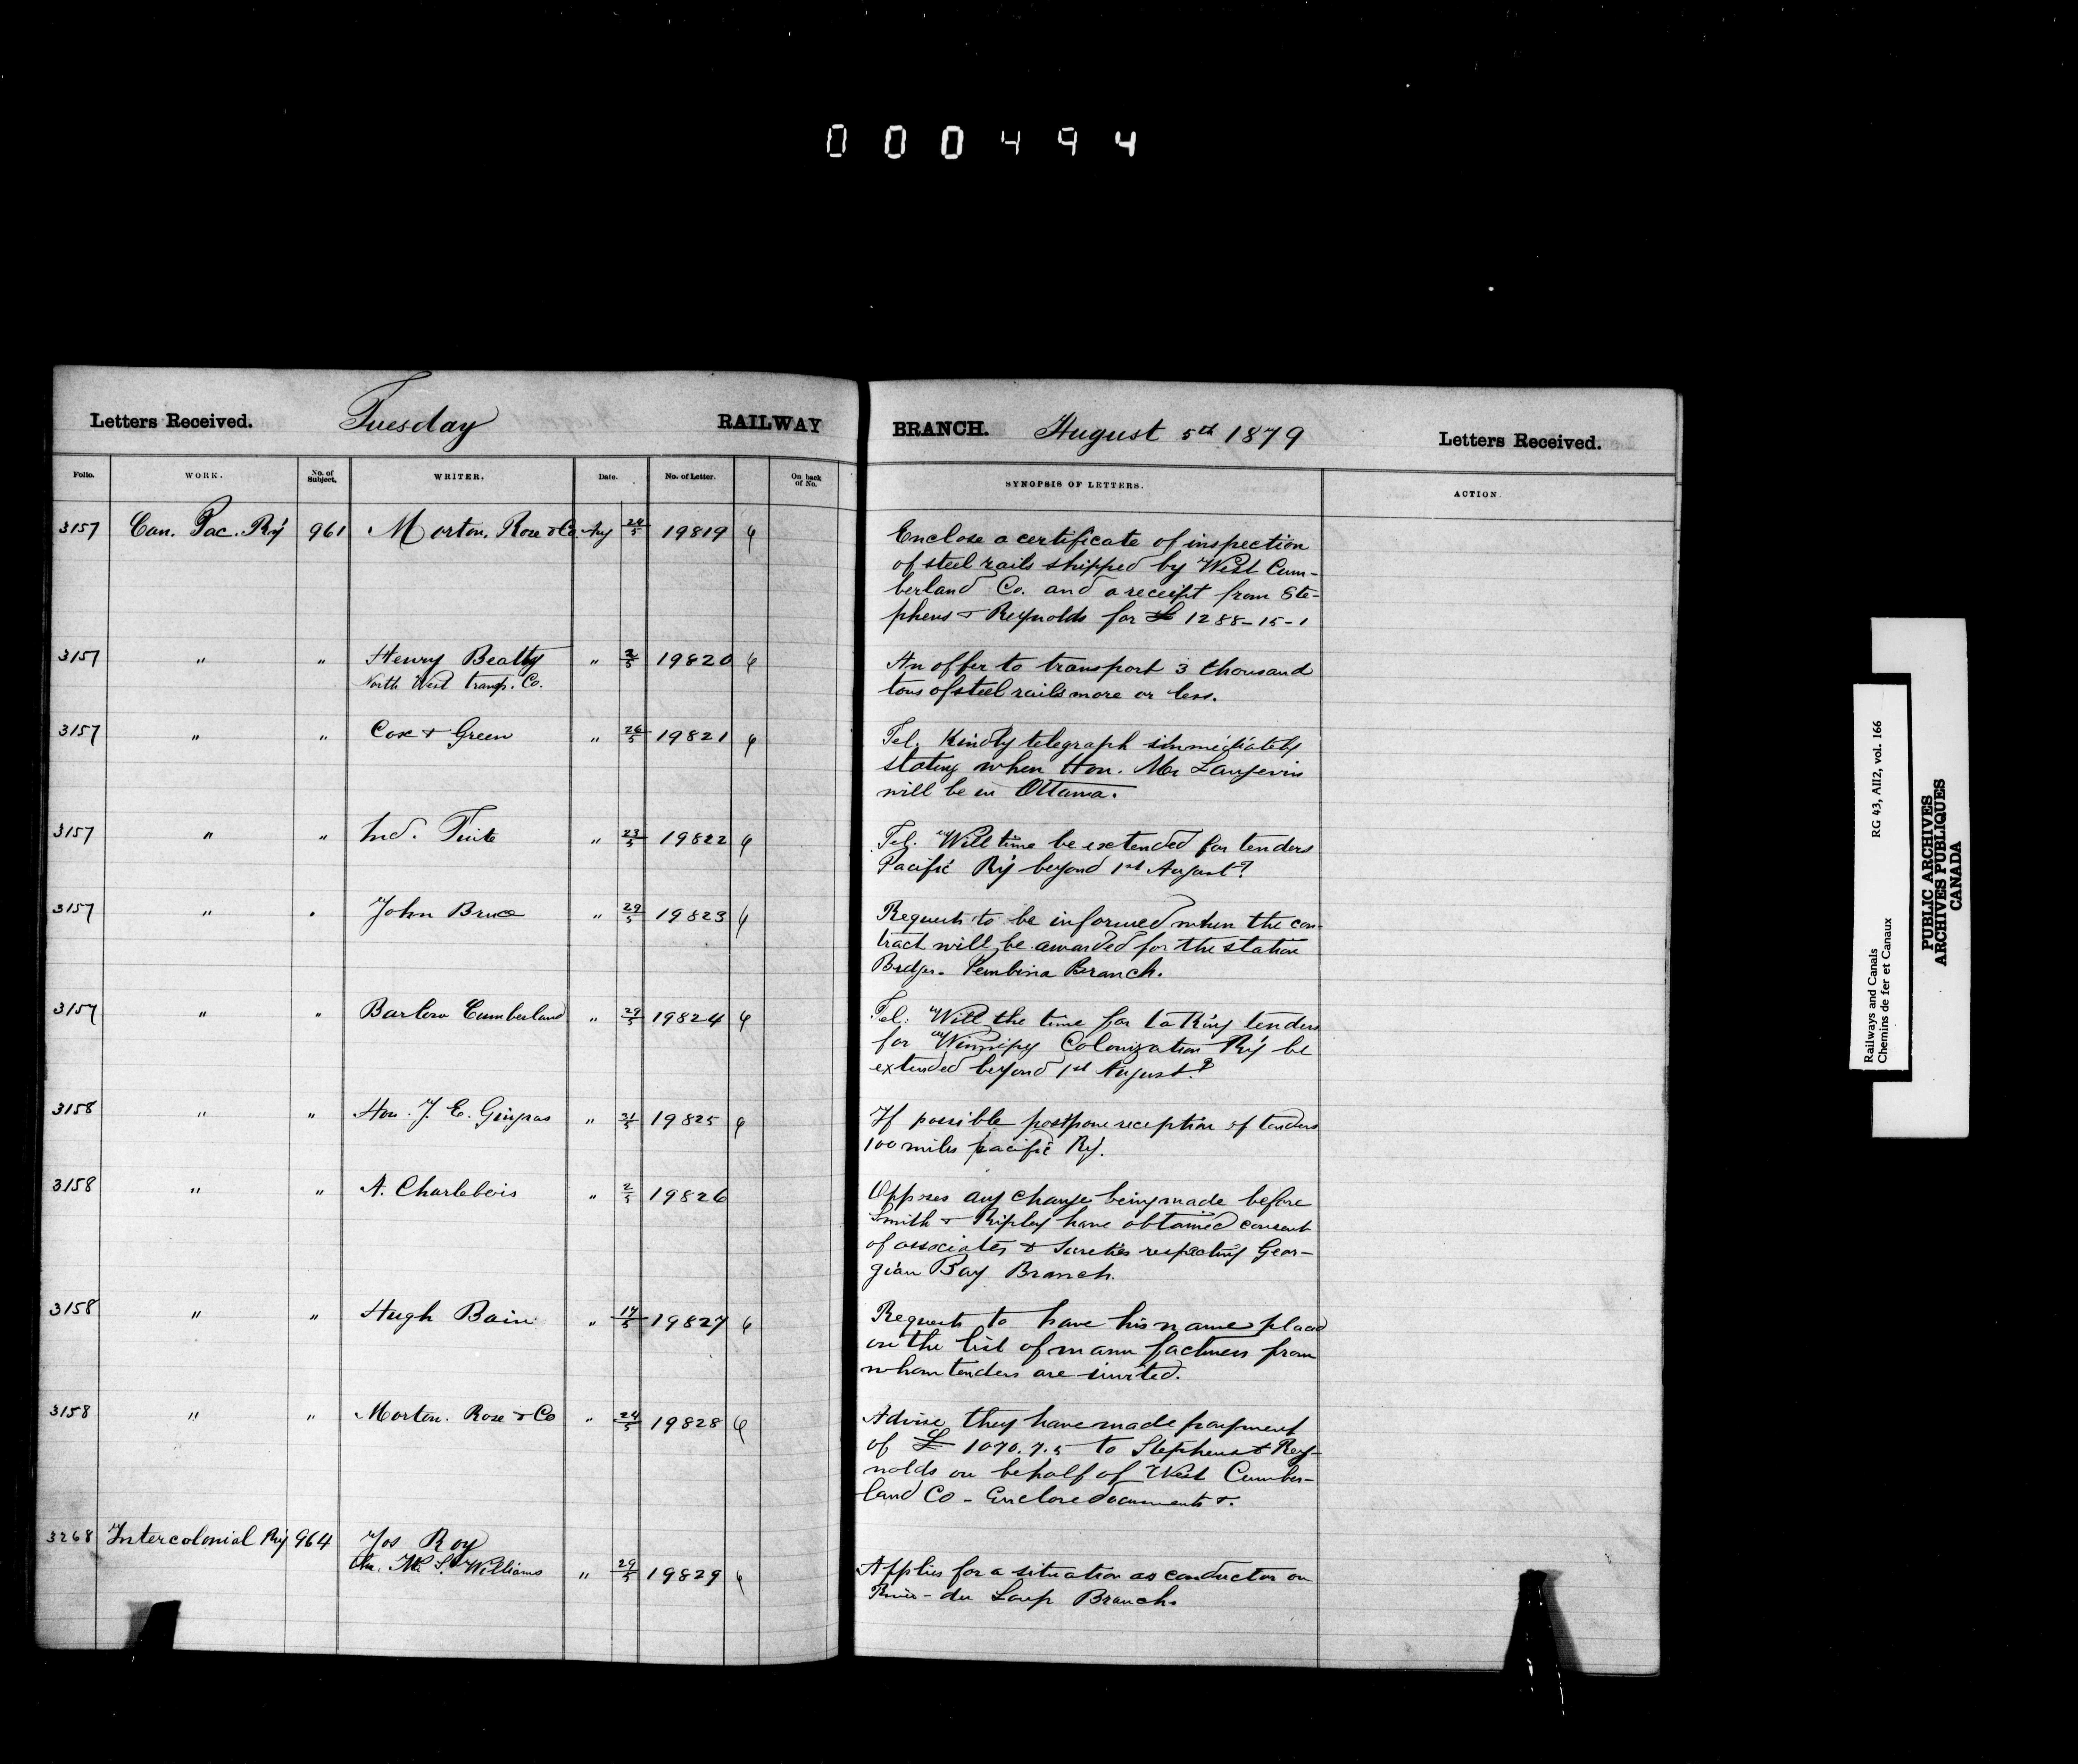 000494
Letters Received. Tuesday RAILWAY BRANCH. August 5th 1879 Letters Received.
Folio. WORK. No. of Subject. WRITER. Date. No. of Letter. On back of No. SYNOPSIS OF LETTERS. ACTION.
3157 Can. Pac. Ry 961 Morton, Rose & Co. Aug 24/5 19819 Enclose a certificate of inspection
of steel rails shipped by West Cum-
berland Co. and a receipt from Ste-
phens & Reynolds for £ 1288-15-1
3157 " " Henry Beatty " 2/5 19820 An offer to transport 3 thousand
North West Transp. Co. tons of steel rails more or less.
3157 " " Cox & Green " 26/5 19821 Tel. Kindly telegraph immediately
stating when Hon. Mr Langevin
will be in Ottawa.
3157 " " " 23/5 19822 Tel. Will time be extended for tenders
Pacific Ry beyond 1st August?
3157 " " John Bruce " 29/5 19823 Requests to be informed when the con-
tract will be awarded for the station
Bldgs. Pembina Branch.
3157 " " Barlow Cumberland " 29/5 19824 Tel. Will the time for taking tenders
for Winnipeg Colonization Ry be
extended beyond 1st August?
3158 " " Hon. J. E. Gingras " 31/5 19825 If possible postpone reception of tenders
100 miles pacific Ry.
3158 " " A. Charlebois " 2/5 19826 Opposes any change being made before
Smith & Ripley have obtained consent
of associates & Sureties respecting Geor-
gian Bay Branch.
3158 " " Hugh Bain " 17/5 19827 Requests to have his name placed
on the list of manufacturers from
whom tenders are invited.
3158 " " Morton. Rose & Co " 24/5 19828 Advise they have made payment
of £ 1070.7.5 to Stephens & Rey-
nolds on behalf of West Cumber-
land Co - Enclose documents &.
3268 Intercolonial Ry 964 Jos Roy
Williams " 29/5 19829 Applies for a situation as conductor on
River-du Loup Branch.
Railways and Canals RG 43, AII2, vol. 166
Chemins de fer et Canaux
PUBLIC ARCHIVES
ARCHIVES PUBLIQUES
CANADA